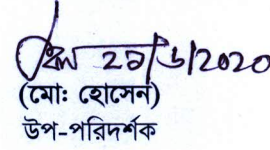 ২৯/৬/২০২০
(মোঃ হোসেন)
উপ-পরিদর্শক